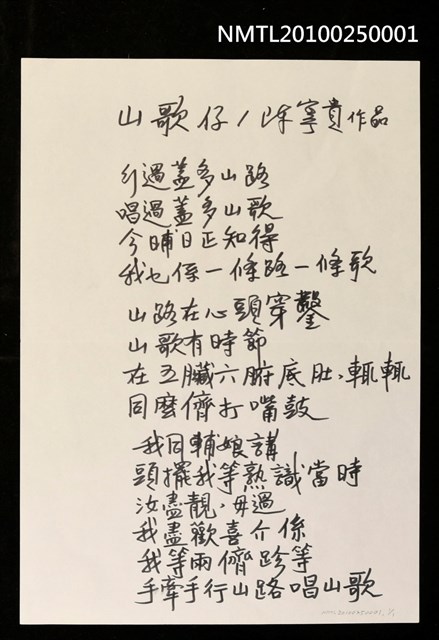 NMTL20100250001
山歌仔/陳寧貴作品
行過蓋多山路
唱過蓋多山歌
今晡日正知得
我也係一條路一條歌
山路在心頭穿鑿
山歌有時節
在五臟六腑底肚,輒輒
同麼儕打嘴鼓
我同輔娘講
頭擺我等熟識當時
汝盡靚,毋過
我盡歡喜介係
我等兩儕跈等
手牽手行山路唱山歌